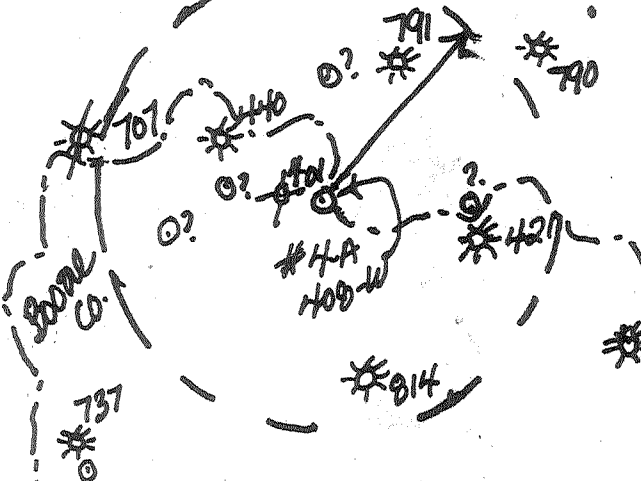 791
?
790
707
440
?
401
?
?
427
#4-A
408-W
Boone
Co.
814
737